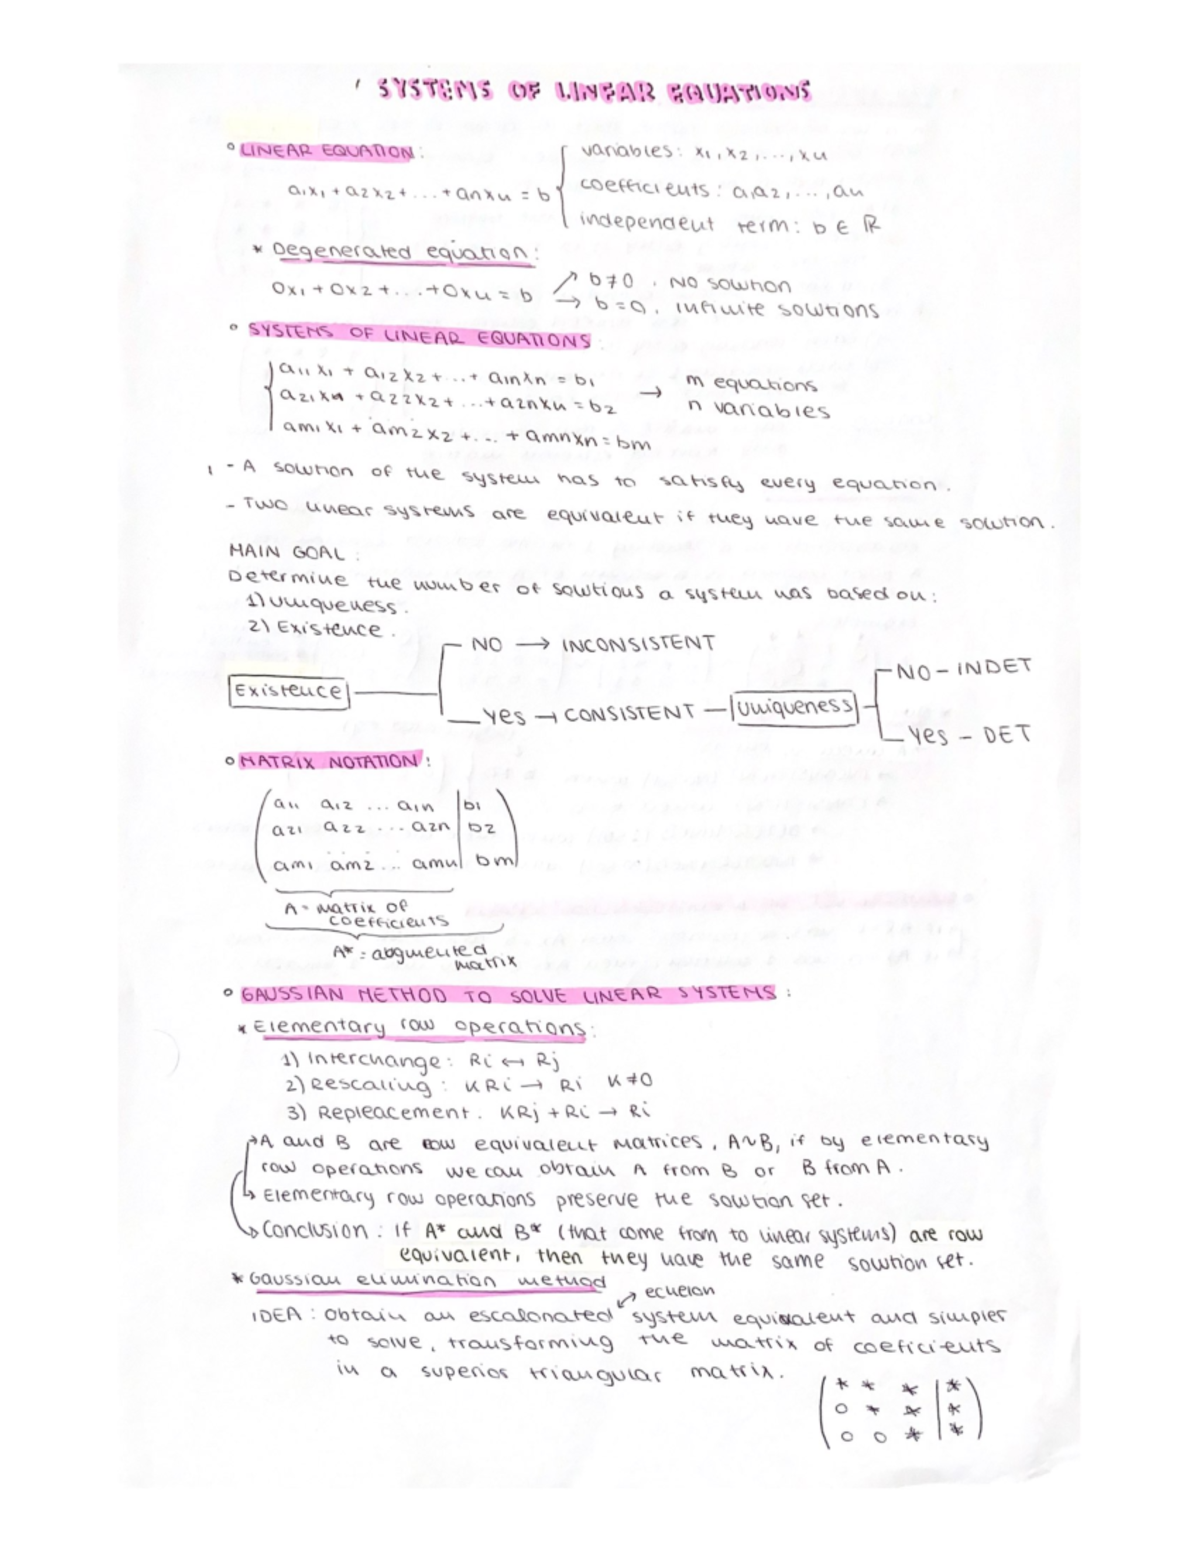 SYSTEMS OF LINEAR EQUATIONS
° LINEAR EQUATION:
variables: x1, x2, ..., xn
a1x1 + a2x2 + ... + anxn = b
coefficients: a1a2, ..., an
independent term: b ∈ ℝ
* Degenerated equation:
0x1 + 0x2 + ... + 0xn = b
↗ b≠0. No solution
→ b=0. infinite solutions
° SYSTEMS OF LINEAR EQUATIONS:
a11x1 + a12x2 + ... + a1nxn = b1
a21x1 + a22x2 + ... + a2nxn = b2
am1x1 + am2x2 + ... + amnxn = bm
→ m equations
n variables
- A solution of the system has to satisfy every equation.
- Two linear systems are equivalent if they have the same solution.
MAIN GOAL:
Determine the number of solutions a system has based on:
1) Uniqueness.
2) Existence.
NO → INCONSISTENT
NO - INDET
Existence
Yes → CONSISTENT — Uniqueness
Yes - DET
° MATRIX NOTATION:
a11 a12 ... a1n | b1
a21 a22 ... a2n | b2
am1 am2 ... amn | bm
A = Matrix of
coefficients
A* = abgmented
matrix
° GAUSSIAN METHOD TO SOLVE LINEAR SYSTEMS:
* Elementary row operations:
1) Interchange: Ri ↔ Rj
2) Rescaling: KRi → Ri K≠0
3) Repleacement. KRj + Ri → Ri
→ A and B are row equivalent matrices, A~B, if by elementary
row operations we can obtain A from B or B from A.
→ Elementary row operations preserve the solution set.
→ Conclusion: If A* and B* (that come from to linear systems) are row
equivalent, then they have the same solution set.
* Gaussian elimination method
echelon
IDEA: Obtain an escalonated system equivalent and simpler
to solve, transforming the matrix of coeficients
in a superior triangular matrix.
* * * | *
0 * * | *
0 0 * | *